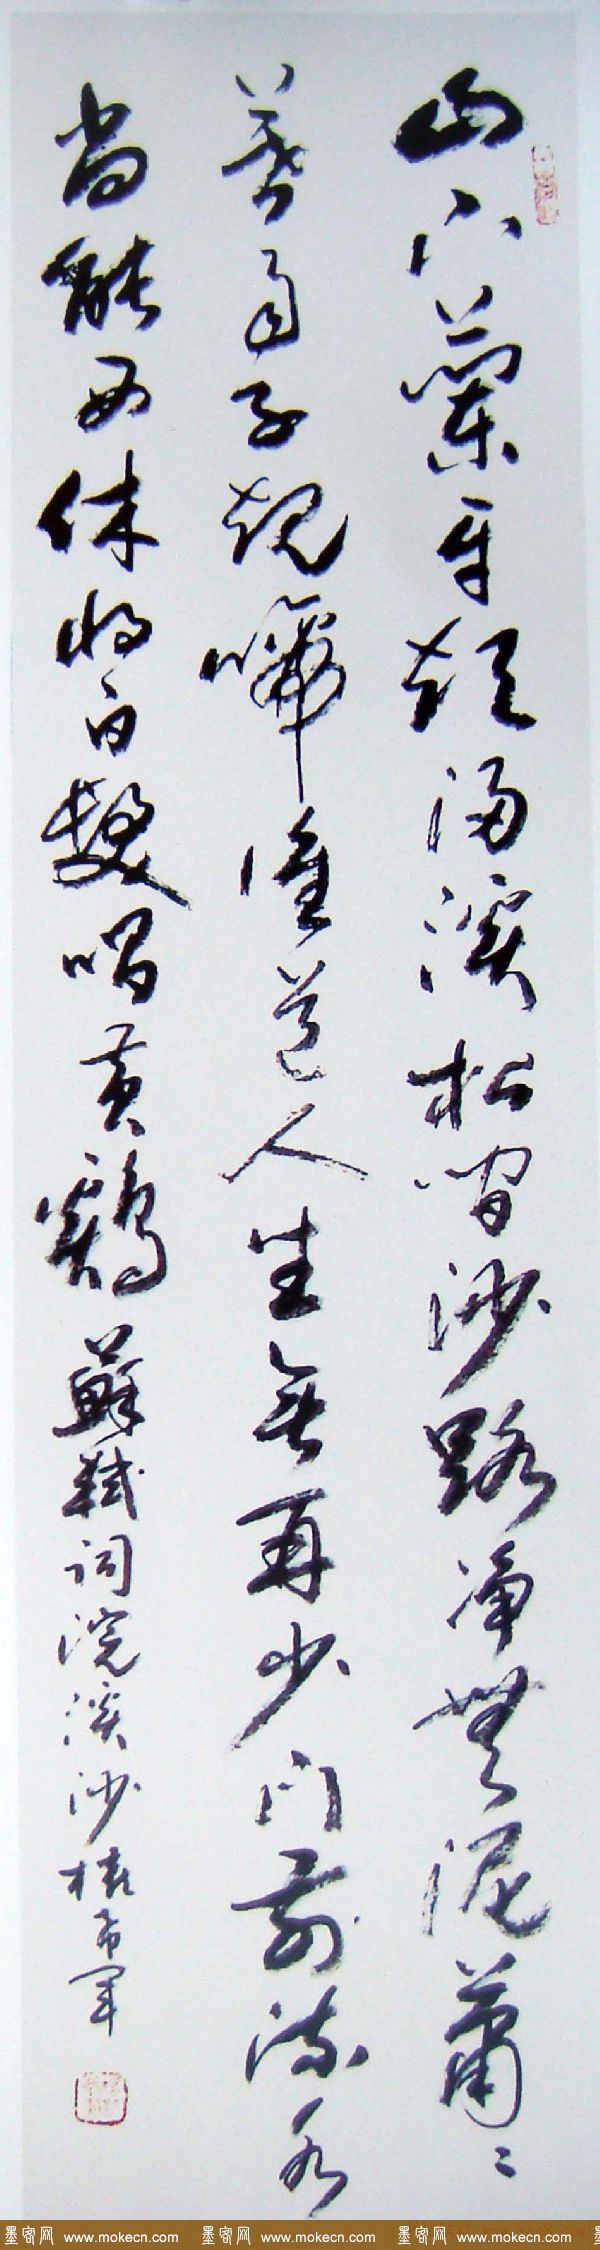 山下蘭牙短浸溪松間沙路淨無泥蕭〻
暮雨子規啼誰道人生無再少門前流水
尚能西休將白髮唱黃鷄蘇軾詞浣溪沙
墨客网 www.mokecn.com 墨客网 www.mokecn.com 墨客网 www.mokecn.com